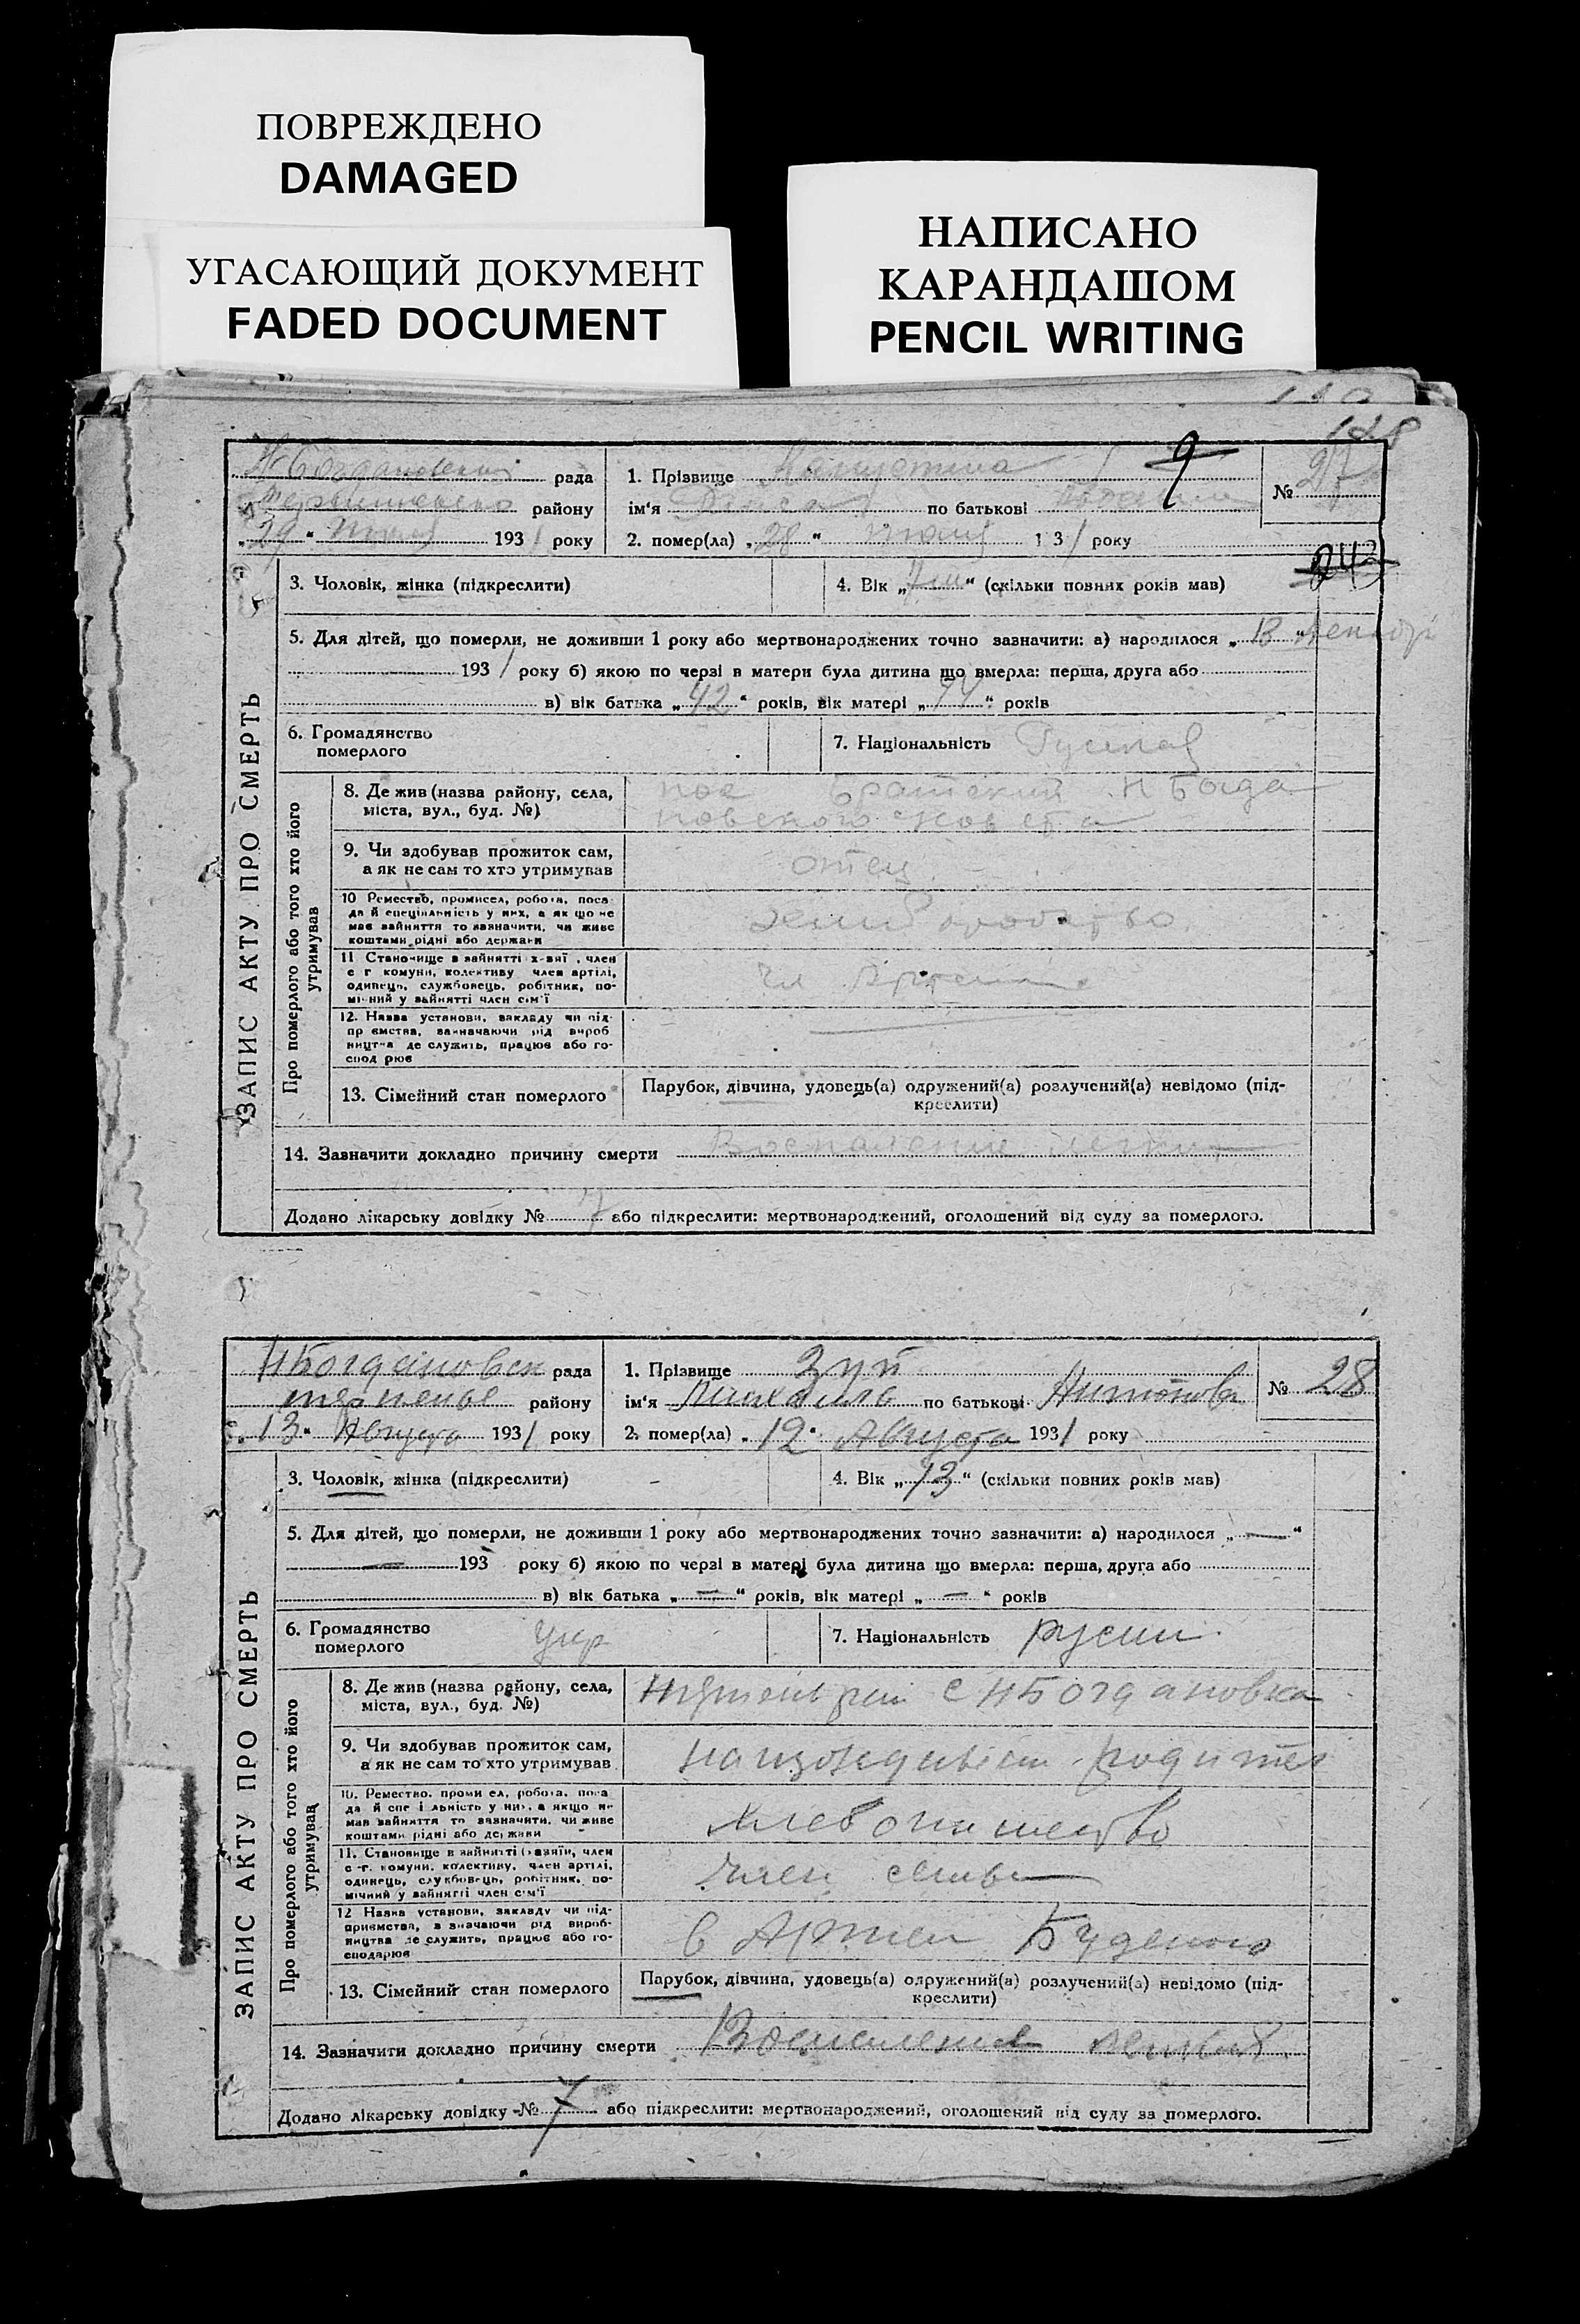 ПОВРЕЖДЕНО
DAMAGED
УГАСАЮЩИЙ ДОКУМЕНТ
FADED DOCUMENT
НАПИСАНО
КАРАНДАШОМ
PENCIL WRITING
рада
району
„29“ 193 1 року
1. Прізвище
9
ім'я по батькові
2. помер(ла) „28“ 1 3 1 року
№ 27
ЗАПИС АКТУ ПРО СМЕРТЬ
3. Чоловік, жінка (підкреслити)
4. Вік „ “ (скільки повних років мав)
5. Для дітей, що померли, не доживши 1 року або мертвонароджених точно зазначити: а) народилося „ “
193 року б) якою по черзі в матери була дитина що вмерла: перша, друга або
в) вік батька „42“ років, вік матері „ “ років
6. Громадянство
померлого
7. Національність
Про померлого або того хто його
утримував
8. Де жив (назва району, села,
міста, вул., буд. №)
пос Братский Н Богда
новского
9. Чи здобував прожиток сам,
а як не сам то хто утримував
отец
10 Ремество, промисел, робота, поса
да й спеціальність у них, а як що не
має зайняття то зазначити, чи живе
коштами рідні або держави
11 Становище в зайнятті х-зяї , член
с г комуни, колективу член артілі,
одинець, службовець, робітник, по-
мічний у зайнятті член сім'ї
чл Артели
12. Назва установи, закладу чи під-
пр ємства, зазначаючи рід вироб
ництва де служить, працює або го-
спод рює
13. Сімейний стан померлого
Парубок, дівчина, удовець(а) одружений(а) розлучений(а) невідомо (під-
креслити)
14. Зазначити докладно причину смерти Воспаление легких
Додано лікарську довідку № або підкреслити: мертвонароджений, оголошений від суду за померлого.
НБогдановск рада
району
„13“ Августа 193 1 року
1. Прізвище Зуй
ім'я по батькові Антонов
2. помер(ла) „12“ Августа 193 1 року
№ 28
ЗАПИС АКТУ ПРО СМЕРТЬ
3. Чоловік, жінка (підкреслити) –
4. Вік „13“ (скільки повних років мав)
5. Для дітей, що померли, не доживши 1 року або мертвонароджених точно зазначити: а) народилося „—“
— 193 року б) якою по черзі в матері була дитина що вмерла: перша, друга або
в) вік батька „—“ років, вік матері „—“ років
6. Громадянство
померлого
укр
7. Національність
Про померлого або того хто його
утримував
8. Де жив (назва району, села,
міста, вул., буд. №)
с НБогдановка
9. Чи здобував прожиток сам,
а як не сам то хто утримував
на иждивении родител
10. Ремество, проми ел, робота, поса
да й спе і льність у них, а якщо не
мав зайняття то зазначити, чи живе
коштами рідні або держави
хлебопашество
11. Становище в зайнятті (хазяїн, член
с-г. комуни, колективу, член артілі,
одинець, службовець, робітник, по-
мічний у зайнятті член сім'ї
член семьи
12 Назва установи, закладу чи під-
приємства, з значаючи рід вироб-
ництва де служить, працює або го-
сподарює
в Артели Буденого
13. Сімейний стан померлого
Парубок, дівчина, удовець(а) одружений(а) розлучений(а) невідомо (під-
креслити)
14. Зазначити докладно причину смерти Воспаление легких
Додано лікарську довідку № 7 або підкреслити: мертвонароджений, оголошений від суду за померлого.